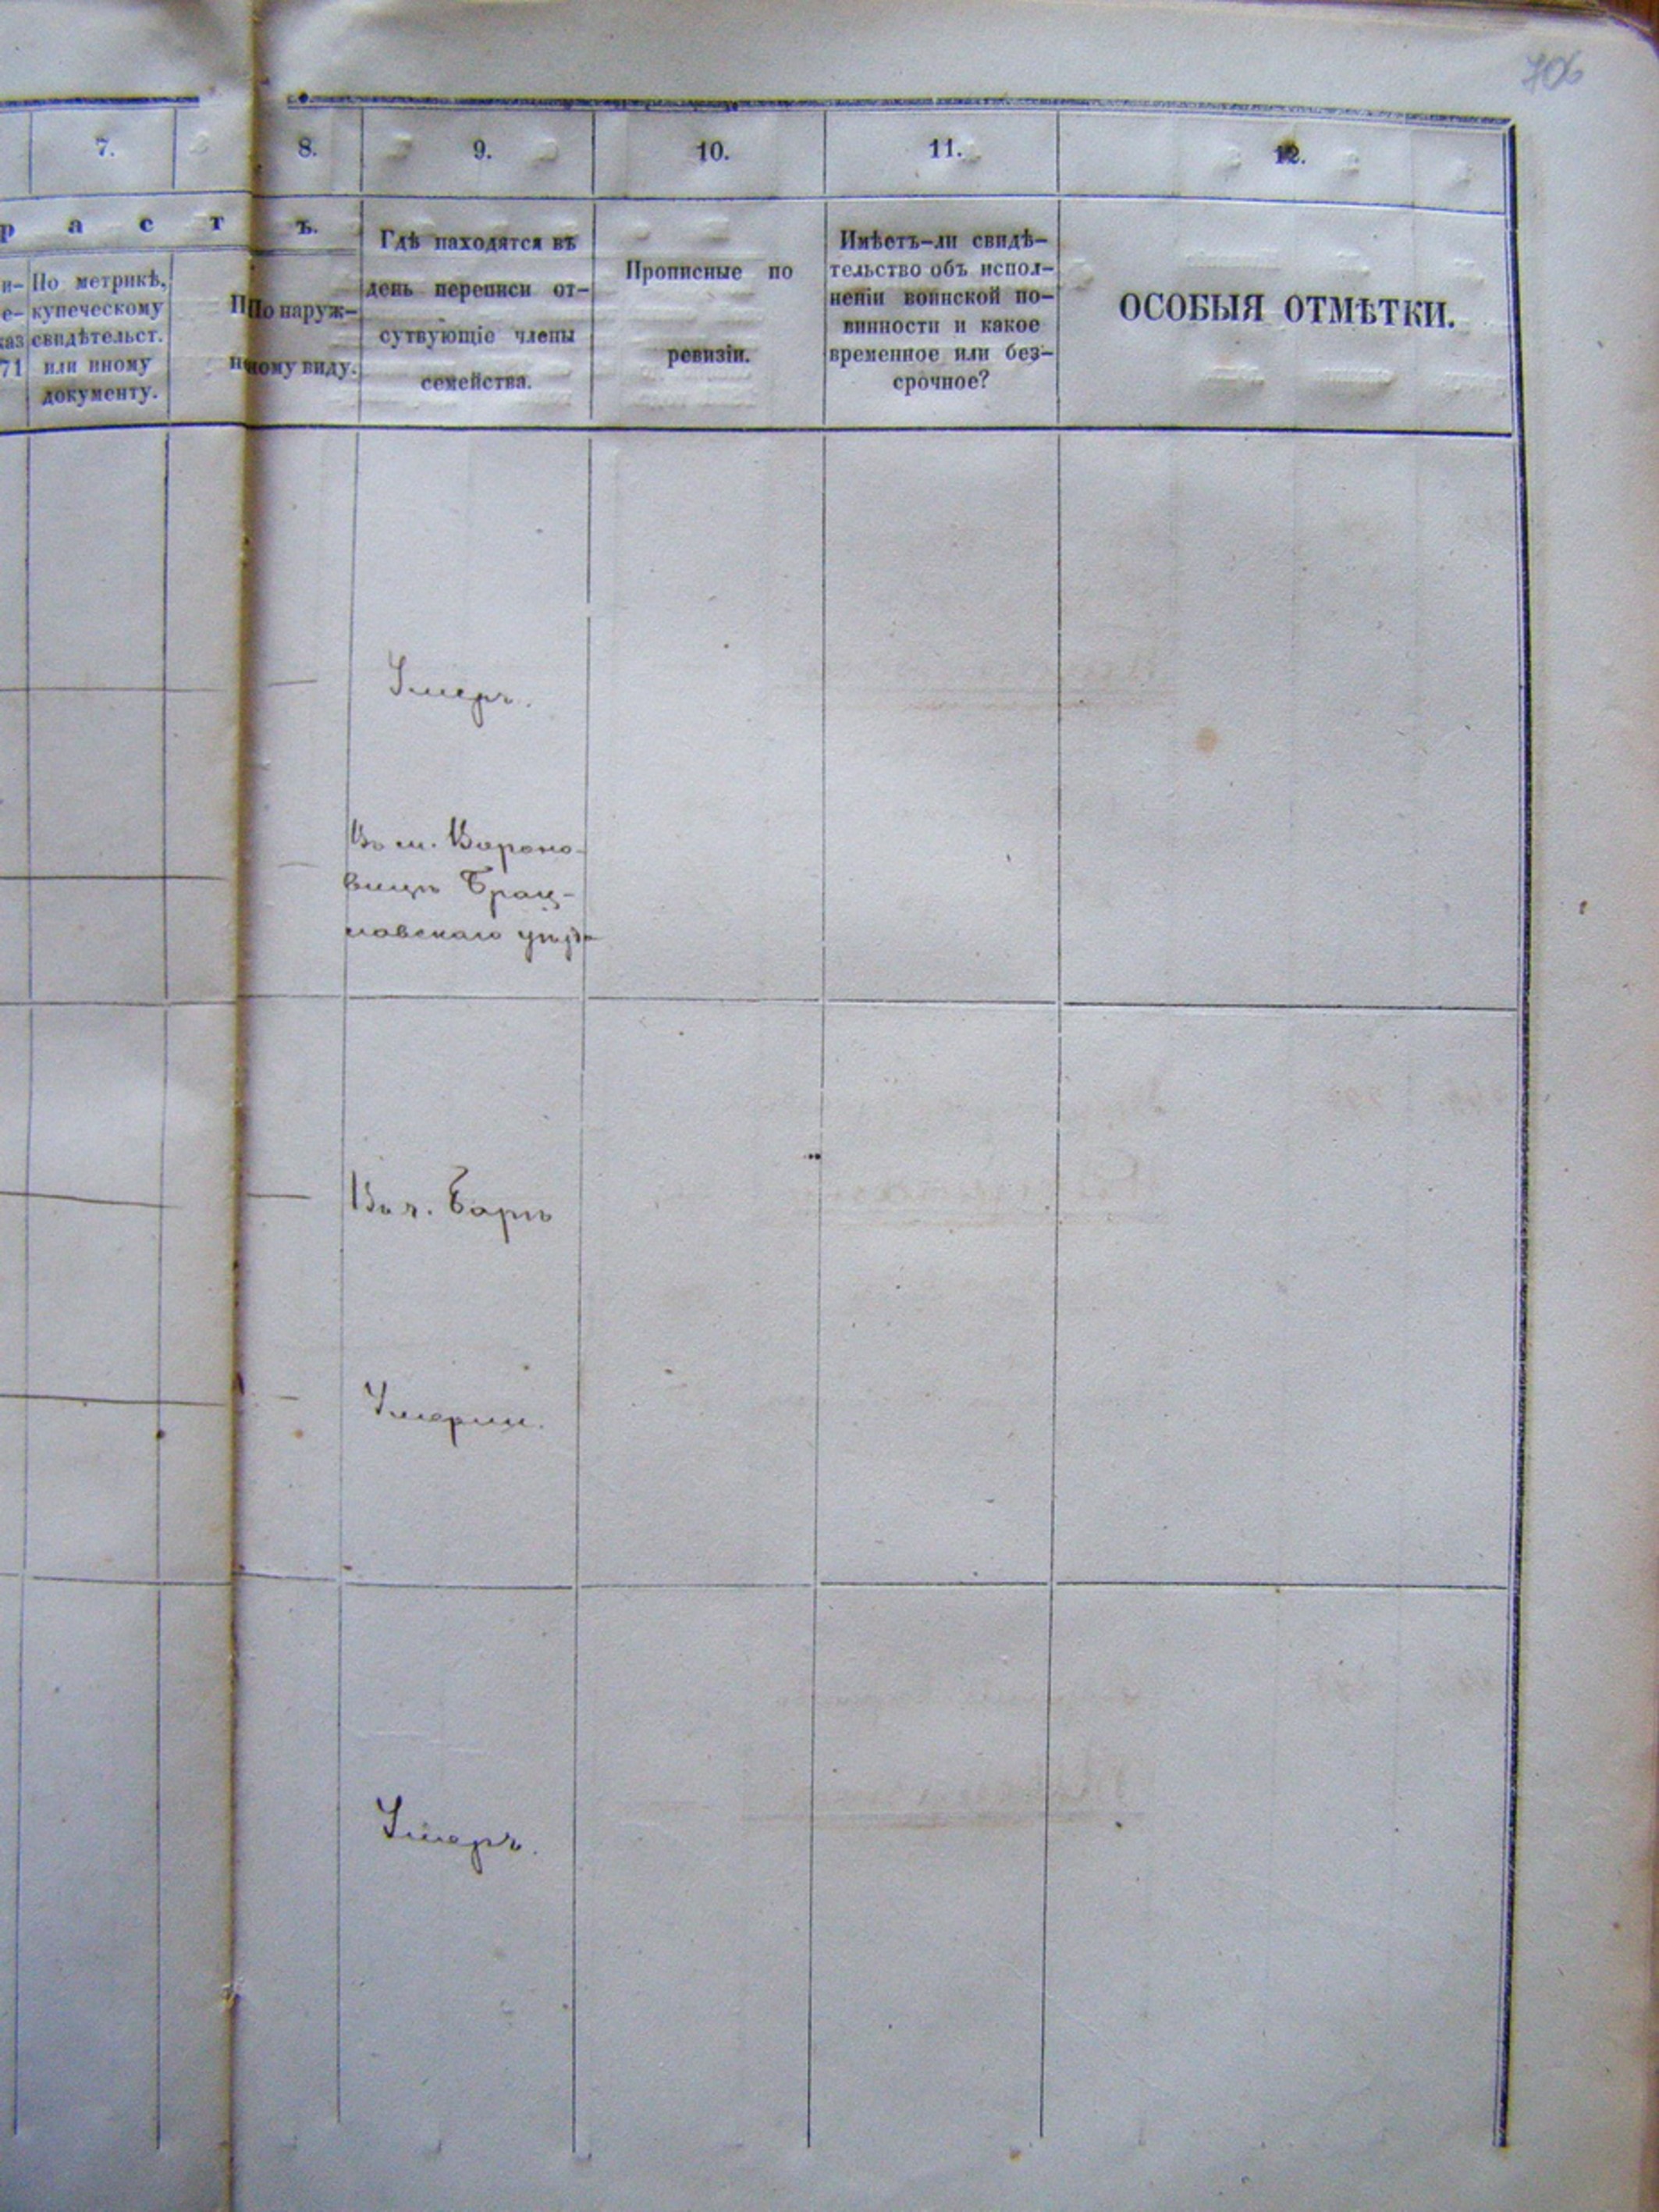 706
7.
8.
9.
10.
11.
12.
р а с т ъ.
и-
е-
каз
71
По метрикѣ,
купеческому
свидѣтельст.
или иному
документу.
По наруж-
ному виду.
Гдѣ находятся въ
день переписи от-
сутвующіе члены
семейства.
Прописные по
ревизіи.
Имѣетъ-ли свидѣ-
тельство объ испол-
неніи воинской по-
винности и какое
временное или без-
срочное?
ОСОБЫЯ ОТМѢТКИ.
Умеръ.
Въ м. Вороно-
вицѣ Брац-
лавскаго уѣзда
Въ г. Барѣ
Умерли.
Умеръ.